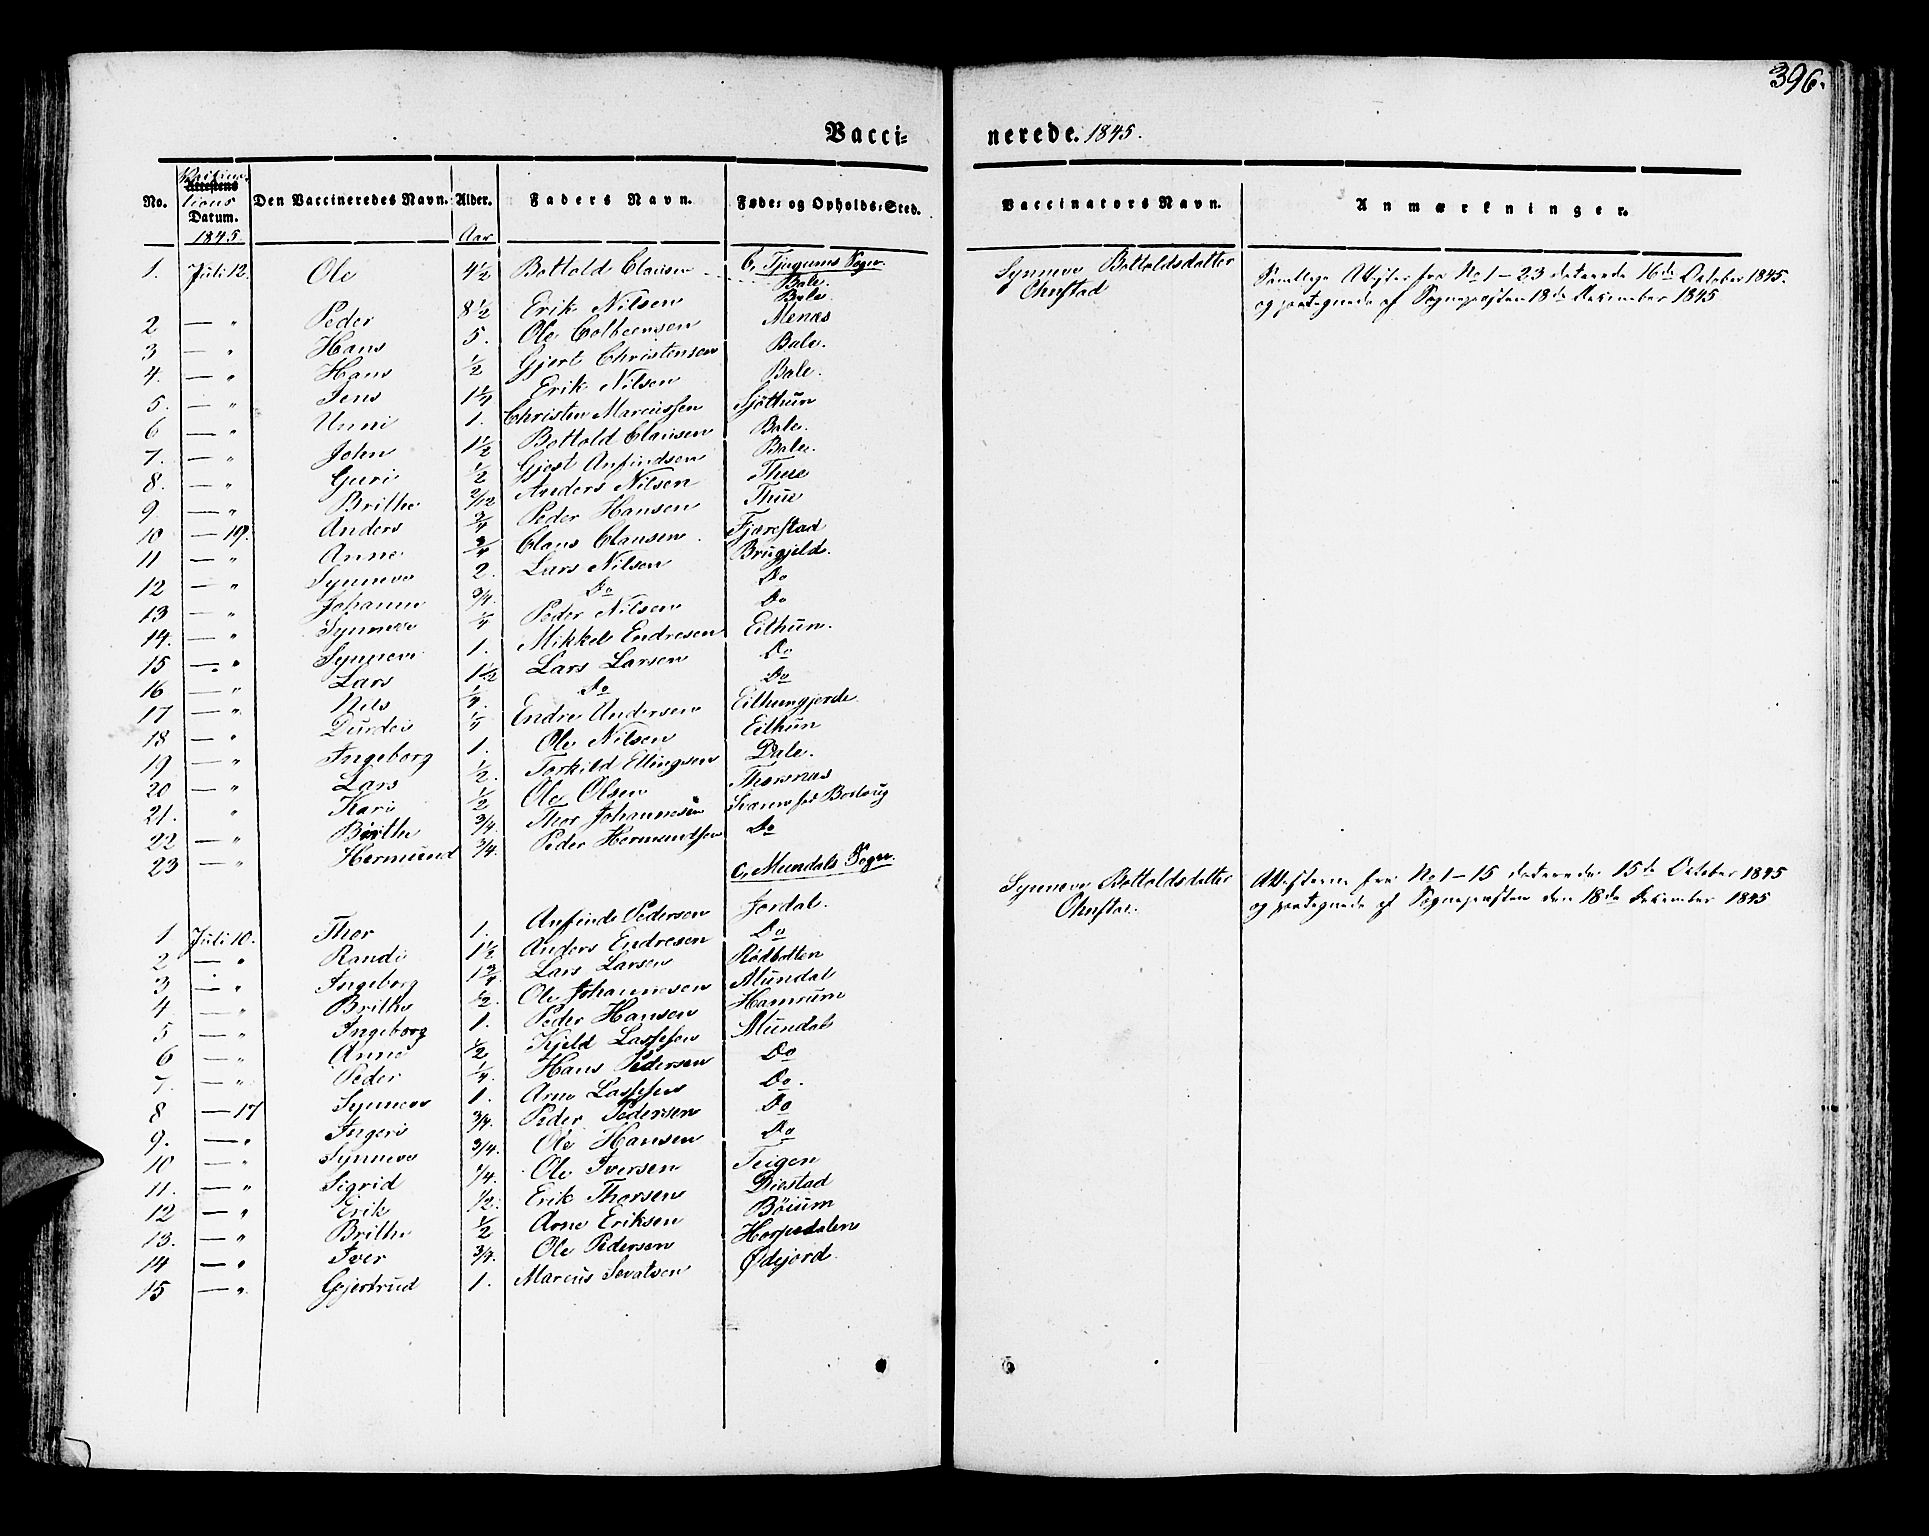 396.
Vacci- nerede. 1845.
No. Attestens Datum. 1845. Den Vaccineredes Navn. Alder. Aar Faders Navn. Føde- og Opholds-Sted. Vaccinators Navn. Anmærkninger.
b, Tjugums Sogn.
1. Juli 12. Ole 4 1/2 Bottold Clausen Bale. Synneve Bottoldsdatter Ohnstad
Samtlige Attester fra No 1-23 daterede 16de October 1845.
og paategnede af Sognepræsten 18de December 1845
2 — " Peder 8 1/2 Erik Nilsen Bale
3 — " Hans 5. Ole Colbeensen Menæs
4. — " Hans 1/2 Gjert Christensen Bale.
5. — " Jens 1 1/4 Erik Nilsen Bale.
6 — " Unni 1. Christen Marcussen Sjøthun
7. — " John 1 1/2 Bottold Clausen Bale.
8. — " Guri 1/2 Gjest Anfindsen Bale.
9. — " Brithe 2/12 Anders Nilsen Thue
10 — 19. Anders 3/4 Peder Hansen Thue
11 — " Anne 3/4 Claus Clausen Fjærestad
12 — " Synneve 2. Lars Nilsen Brugjeld.
13 — " Johanne 3/4. Do Do
14. — " Synneve 1/4 Peder Nilsen Do
15 — " Synneve 1. Mikkel Endresen Eithun.
16 — " Lars 1 1/2 Lars Larsen Do
17 — " Nils 1/4. Do Do
18 — " Durdei 1/4 Endre Andersen Eithungjerde.
19 — " Ingeborg 1. Ole Nilsen Eithun
20 — " Lars 1/2. Torkild Ellingsen Dale.
21. " Kari 1/2 Ole Olsen Thorsnæs
22 — " Birthe 3/4. Thor Johannesen
23 — " Hermund 3/4. Peder Hermundsen Do
c, Mundals Sogn.
Synneve Bottoldsdatter Ohnstad.
Attesterne fra No 1-15 daterede 15de October 1845
og paategnede af Sognepræsten den 18de December 1845
1. Juli 10. Thor 1. Anfind Pedersen Jordal.
2 — " Randi 1 1/2 Anders Endresen Do
3 — " Ingeborg 1 3/4 Lars Larsen Rødbotten
4. — " Brithe 1/2. Ole Johannesen Mundal
5 — " Ingeborg 1. Peder Hansen Hamrum
6 — " Anne 1/2 Kjeld Lassesen Mundal
7. — " Peder 1/4. Hans Pedersen Do
8 — 17 Synneve 1. Arne Lassesen Do.
9. — " Ingeri 3/4. Peder Pedersen Do
10 — " Synneve 3/4. Ole Hansen Do
11. — " Sigrid 1/4. Ole Iversen Teigen
12 — " Erik 1/2. Erik Thorsen Distad
13. — " Brithe 1/2 Arne Eriksen Bøium
14 — " Iver 3/4. Ole Pedersen Horpedalen
15 — " Gjertrud 1. Marcus Sevatsen Ødejord.